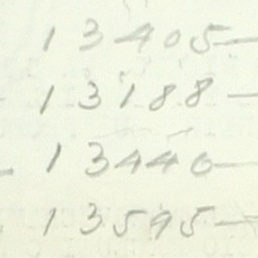 13405-
13188-
13440-
13595-